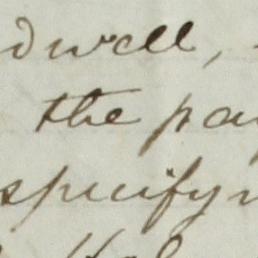 dwell,
the pay
specifyn